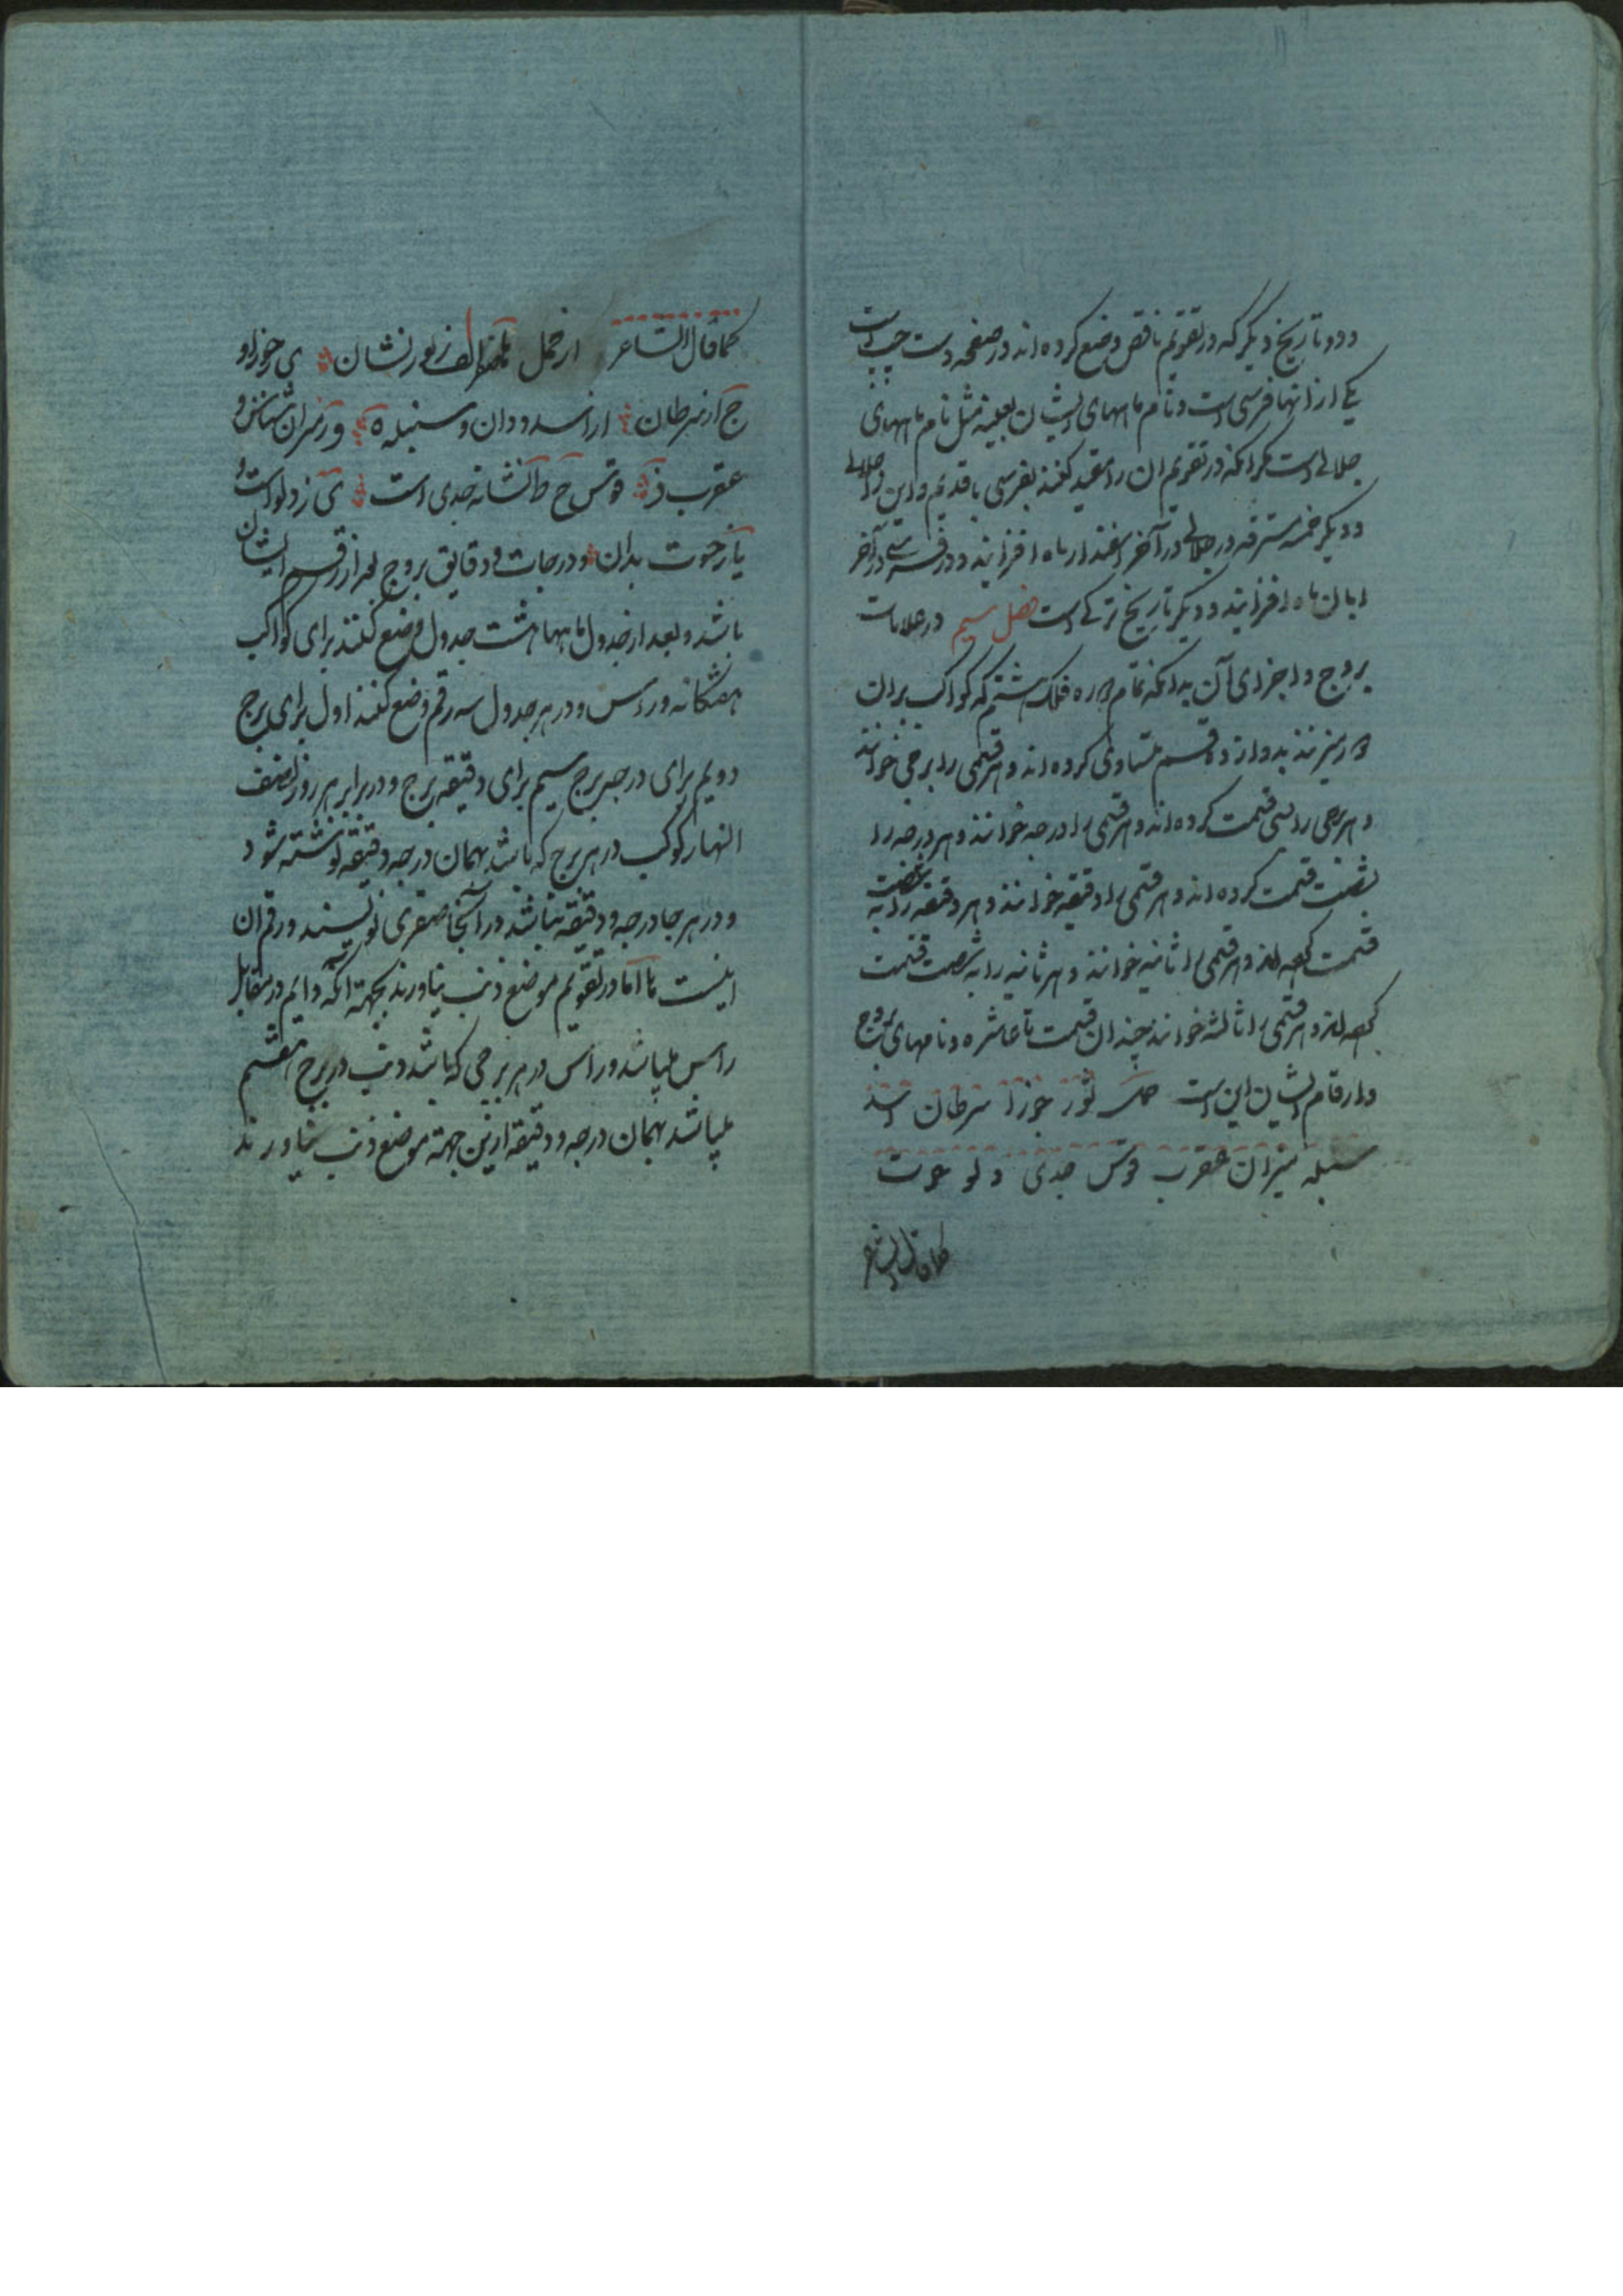 و دو تاریخ دیگر که در تقویم ناقص وضع کرده‌اند در صفحه دست چپ است
یکی از آنها فرسی است و نام ماههای ایشان بعینه مثل نام ماههای
جلالی است مگر آنکه در تقویم ان را مقید کنند بفرسی یا قدیم و این را جلالی
و دیگر خمسه مسترقه در جلالی در آخر اسفندار ماه افزایند و در فرسی در آخر
ابان ماه افزایند و دیگر تاریخ ترکی است فصل سیم در علامات
بروج و اجزای آن بدانکه تمام دوره فلک هشتم که کواکب بران
مرکوزند بدوازده قسم متساوی کرده‌اند و هر قسمی را برجی خوانند
و هر برجی را بسی قسمت کرده‌اند و هر قسمی را درجه خوانند و هر درجه را
بشصت قسمت کرده‌اند و هر قسمی را دقیقه خوانند و هر دقیقه را به شصت
قسمت کرده‌اند و هر قسمی را ثانیه خوانند و هر ثانیه را به شصت قسمت
کرده‌اند و هر قسمی را ثالثه خوانند چندان قسمت تا عاشره و نامهای بروج
و ارقام ایشان این است حمل ثور جوزا سرطان اسد
سنبله میزان عقرب قوس جدی دلو حوت
کما قال الشاعر
کما قال الشاعر از حمل الف ز ثور نشان ی جوزا و
ج از سرطان از اسد و دان و سنبله ه و ز میزان شناس و
عقرب ز قوس ح ط نشانه جدی است ی ز دلو است و
یا ز حوت بدان و درجات و دقایق بروج بعد از رقم ایشان
باشد و بعد از جدول ماهها هشت جدول وضع کنند برای کواکب
هفتگانه و رأس و در هر جدول سه رقم وضع کنند اول برای برج
دویم برای درجه برج سیم برای دقیقه برج و در برابر هر روز نصف
النهار کوکب در هر برج که باشد بهمان درجه و دقیقه نوشته شود
و در هر جا درجه و دقیقه نباشد در آنجا صفری نویسند و رقم ان
اینست اما در تقویم موضع ذنب نیاورند بجهة آنکه دایم در مقابل
راس میباشد و راس در هر برجی که باشد ذنب در برج هفتم
میباشد بهمان درجه و دقیقه ازین جهة موضع ذنب نیاورند